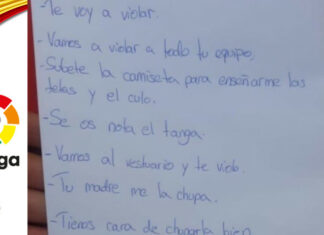 -Te voy a violar.
-Vamos a violar a todo tu equipo.
-Subete la camiseta para enseñarme las
tetas y el culo.
-Se os nota el tanga.
-Vamos al vestuario y te violo.
-Tu madre me la chupa.
-Tienes cara de chuparla bien
ga